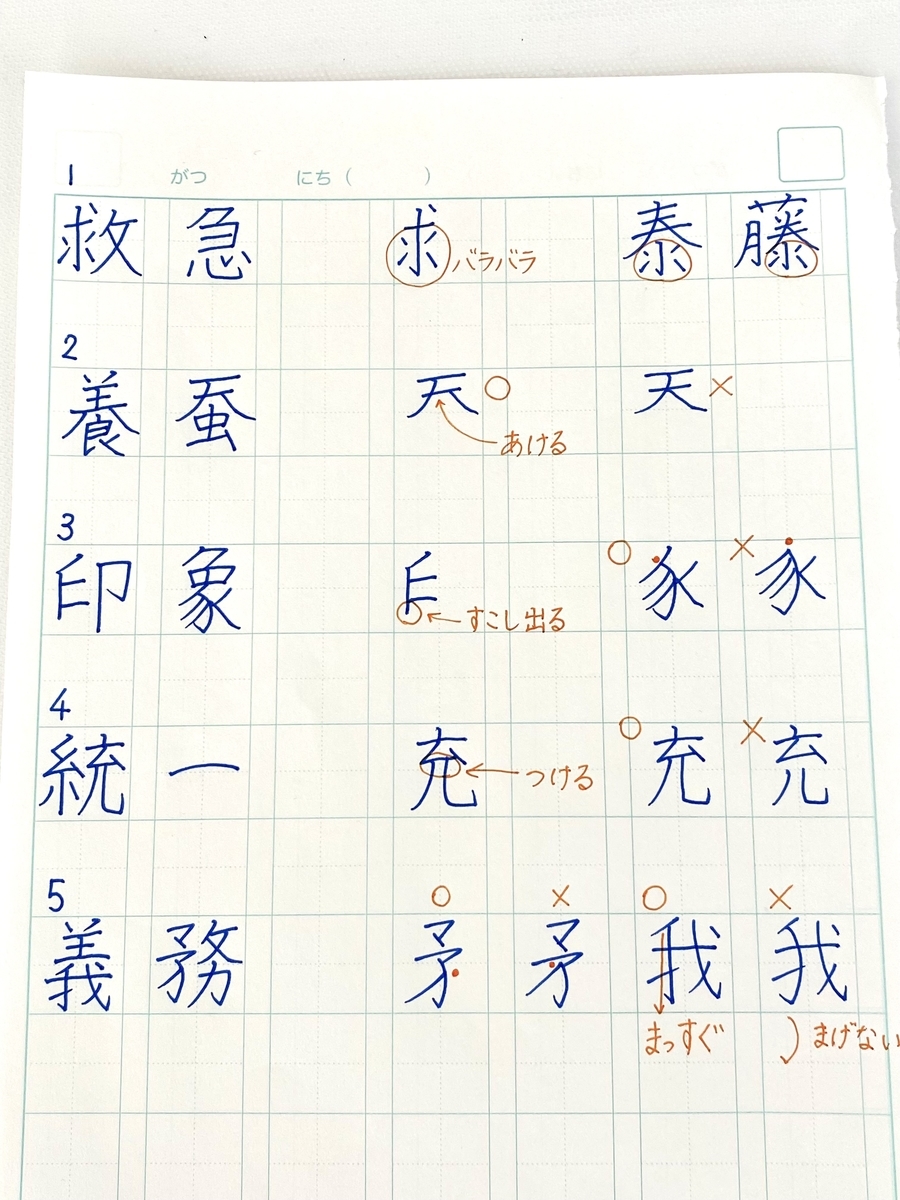 1 がつ にち ( )
救急 求 バラバラ 泰 藤
2
養蚕 天 ○ 天 ×
あける
3
印象 ○ 豕 × 豕
すこし出る
4
統一 充 つける ○ 充 × 充
5 ○ × ○ ×
義務 矛 矛 我 我
まっすぐ まげない